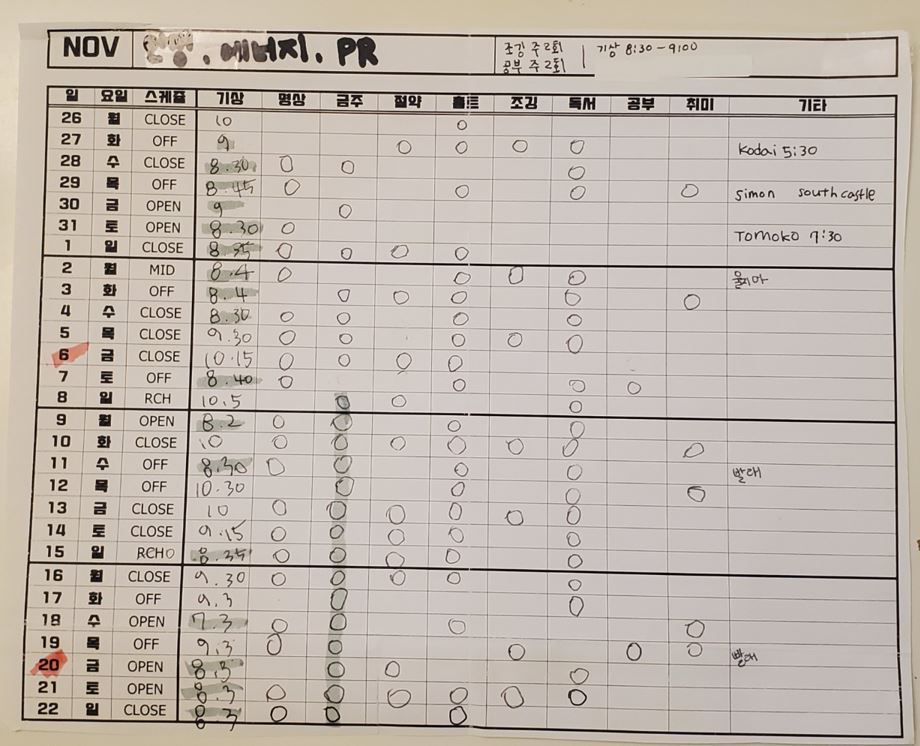 NOV 에너지. PR 조깅 주2회 기상 8:30-9:00
공부 주2회
일 요일 스케쥴 기상 명상 금주 절약 홈트 조깅 독서 공부 취미 기타
26 월 CLOSE 10 O
27 화 OFF 9 O O O O Kodai 5:30
28 수 CLOSE 8.30 O O O
29 목 OFF 8.45 O O O O simon southcastle
30 금 OPEN 9 O
31 토 OPEN 8.30 O Tomoko 7:30
1 일 CLOSE 8.35 O O O O
2 월 MID 8.4 O O O O
3 화 OFF 8.4 O O O O O
4 수 CLOSE 8.30 O O O O
5 목 CLOSE 9.30 O O O O O
6 금 CLOSE 10.15 O O O O
7 토 OFF 8.40 O O O O
8 일 RCH 10.5 O O O
9 월 OPEN 8.2 O O O O
10 화 CLOSE 10 O O O O O O O
11 수 OFF 8.30 O O O O 빨래
12 목 OFF 10.30 O O O O
13 금 CLOSE 10 O O O O O O
14 토 CLOSE 9.15 O O O O O
15 일 RCHO 8.35 O O O O O
16 월 CLOSE 9.30 O O O O O
17 화 OFF 9.3 O O
18 수 OPEN 7.3 O O O O
19 목 OFF 9.3 O O O O O 빨래
20 금 OPEN 8.3 O O O
21 토 OPEN 8.3 O O O O O O
22 일 CLOSE 8.3 O O O